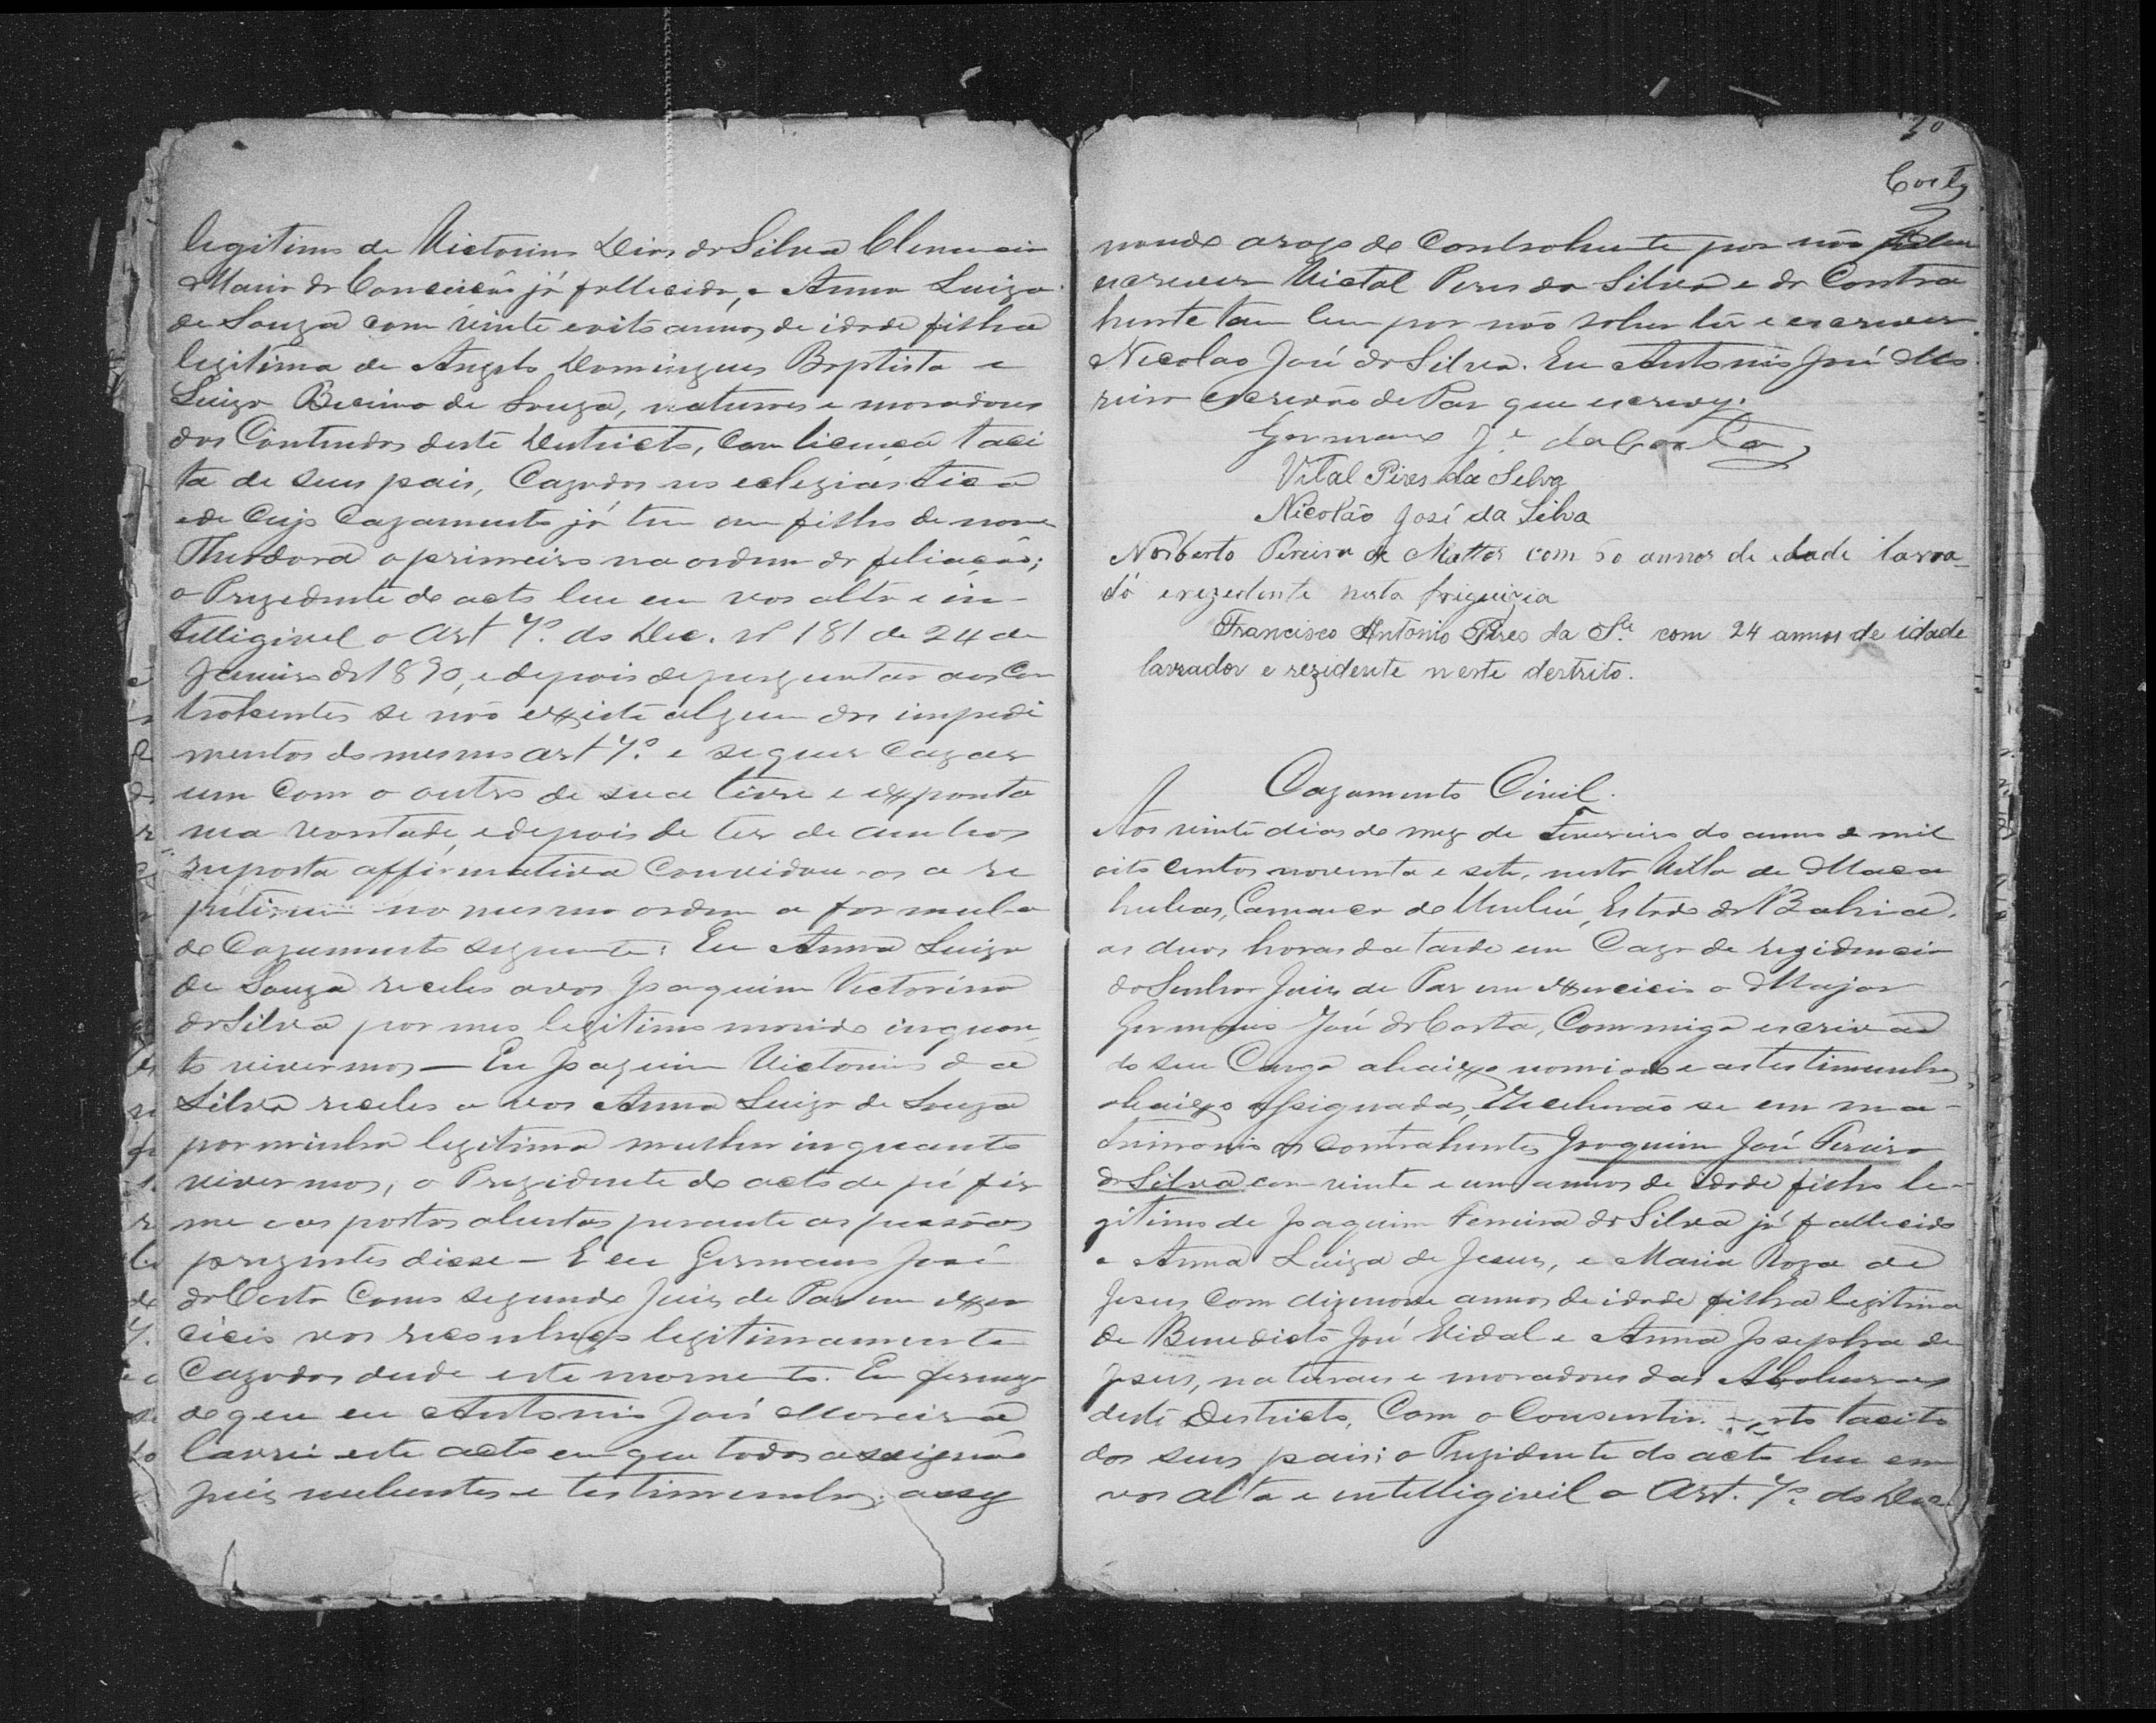 legitimo de Victorino Dias da Silva Clemencia
Maria da Conceicão já fallecida, e Anna Luiza
de Souza com vinte e oito annos de idade filha
legitima de Angelo Domingues Baptista e
Luiza de Souza, naturaes e moradores
dos Contendos deste Destricto, com licença taci
ta de seus pais, Cazados no ecleziastico
e de cujo Cazamento já tem um filho de nome
Theodora o primeiro na ordem da filiação;
o Prezedente do acto leu em vos alta e in-
telligivel o Art 7º. do Dec. nº 181 de 24 de
Janeiro de 1890, e depois de perguntar aos Con
trahentes se não existe algum dos impedi
mentos do mesmo art 7º. e se quer Cazar
um com o outro de sua livre e exponta
nia vontade, e depois de ter de ambos
resposta affirmativa convidou-os a re
petirem na mesma ordem a formula
de Cazamento seguinte: Eu Anna Luiza
de Souza recebo a vos Joaquim Victorino
da Silva por meo legitimo marido inquan
to vivermos — Eu Joaquim Victorino da
Silva recebo a vos Anna Luiza de Souza
por minha legitima mulher inquanto
vivermos, o Prezidente do acto de pé fir
me e as portas abertas perante as pessôas
prezentes disse — E eu Germano José
da Costa Como segundo Juis de Pas em exer
cicio vos reconheço legitimamente
Cazados desde este momento. Em firmeza
de que eu Antonio José Moreira
lavrei este acto em que todos assignão
juis nubentes e testimunhas; assig
20
Costa
nando a rogo do Contrahente por não saber
escrever Victal Peres da Silva e da Contra
hente tam bem por não saber lêr e escrever
Nicolao José da Silva. Eu Antonio José Mo
reira escrivão de Pas que escrevy.
Germano Jé. da Costa
Vital Pires da Selva
Nicolão José da Silva
Norberto Pereira de Mattos com 50 annos de edade lavra-
dô e rezedente nesta friguizia
Francisco Antonio Pires da Sª. com 24 annos de idade
lavrador e rezidente neste destrito.
Cazamento Civil.
Aos vinte dias do mez de Fevereiro do anno de mil
oito centos noventa e sete, nesta Villa de Maca
hubas, Comarca de Urubú, Estado da Bahia,
as duas horas da tarde em Caza de rezidencia
do Senhor Juis de Pas em exercicio o Major
Germano José da Costa, Commigo escrivão
do seu Cargo abaixo nomiado e as testimunhas
abaixo assignadas, Receberão se em ma-
trimonio os contrahentes Joaquim José Ferreira
da Silva com vinte e um annos de idade filho le-
gitimo de Joaquim Ferreira da Silva já fallecido
e Anna Luiza de Jesus, e Maria Roza de
Jesus com dizenove annos de idade filha legitima
de Benedicto José Vidal e Anna Josepha de
Jesus, naturaes e moradores das
deste Destricto, Com o Consentimento tacito
dos seus pais; o Prezidente do acto leu em
vos alta e intelligivil o Art. 7º. do Dec.